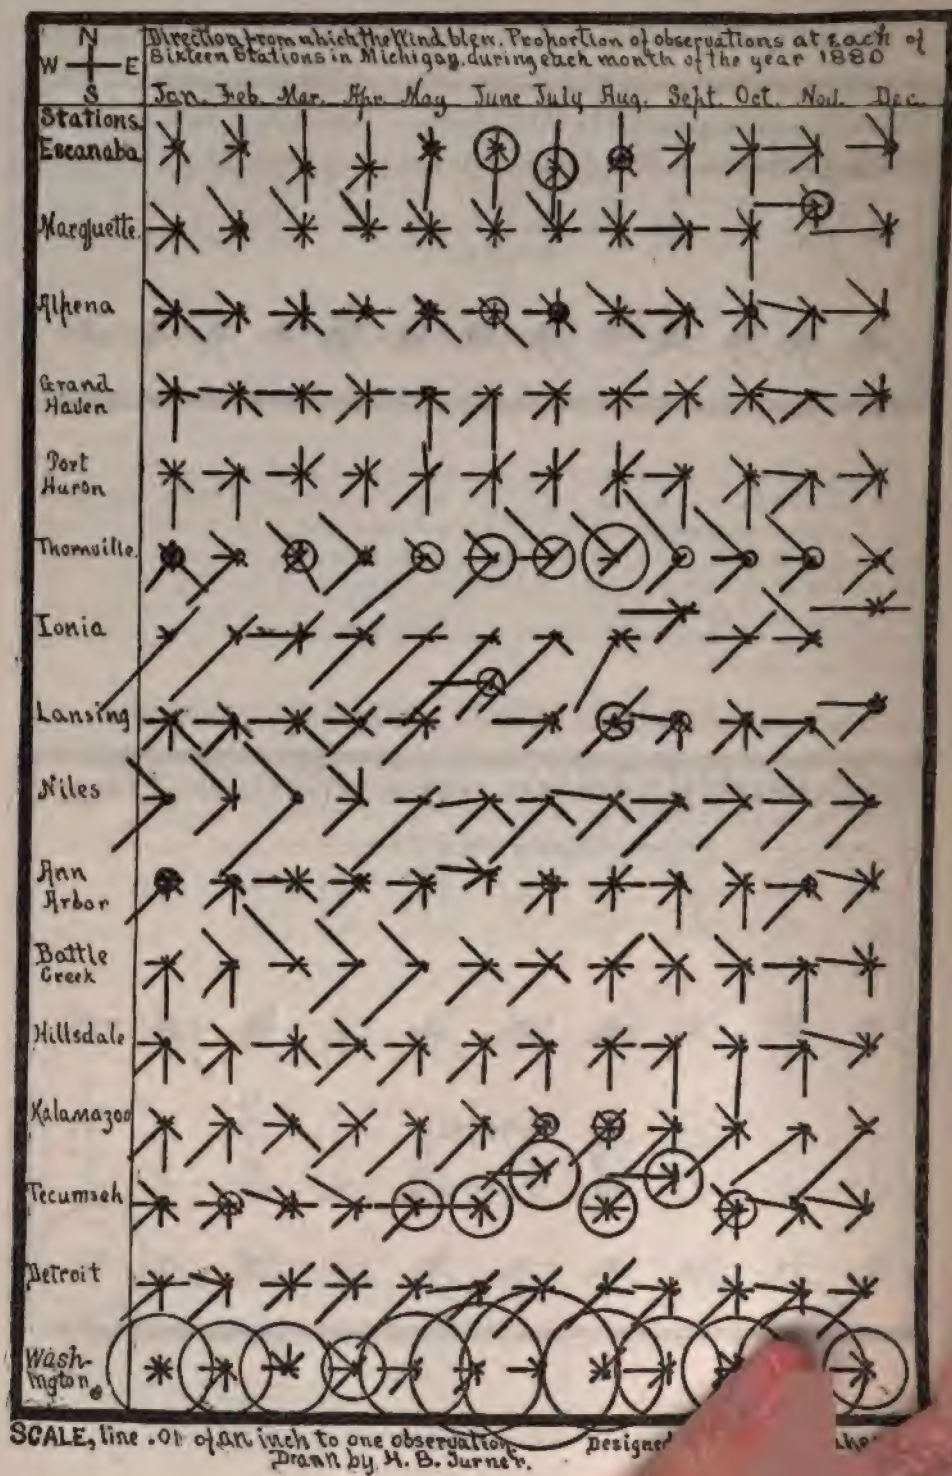 N
W E
S
Direction from which the Wind blew. Proportion of observations at each of
Sixteen Stations in Michigan, during each month of the year 1880
Jan. Feb. Mar. Apr. May June July Aug. Sept. Oct. Nov. Dec.
Stations.
Escanaba
Marquette.
Alpena
Grand
Haven
Port
Huron
Thornville.
Ionia
Lansing
Niles
Ann
Arbor
Battle
Creek
Hillsdale
Kalamazoo
Tecumseh
Detroit
Wash-
ington.
SCALE, line .01 of an inch to one observation.
Designed
Drawn by H. B. Turner.